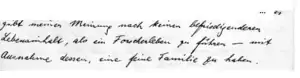 gibt meiner Meinung nach keinen befriedigenderen
Lebensinhalt, als ein Forscherleben zu führen – mit
Ausnahme dessen, eine feine Familie zu haben.